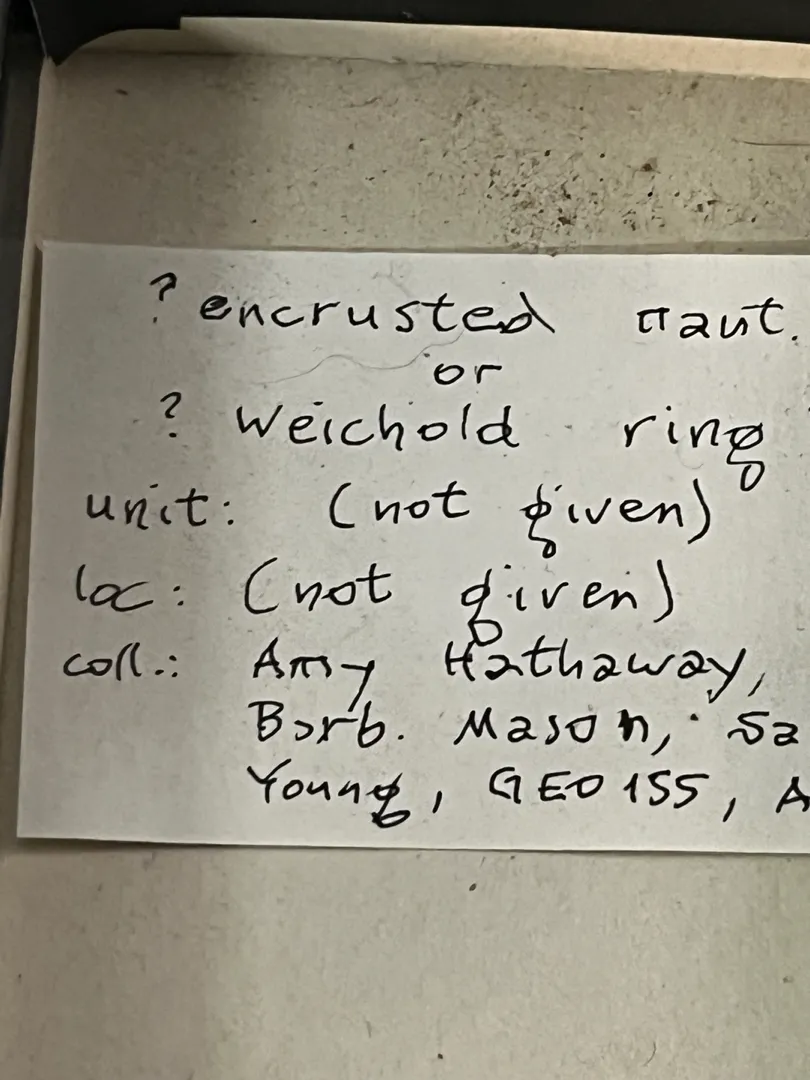 ? encrusted naut.
or
? Weichold ring
unit: (not given)
loc: (not given)
coll.: Amy Hathaway,
Barb. Mason, Sa
Young, GEO 155, A